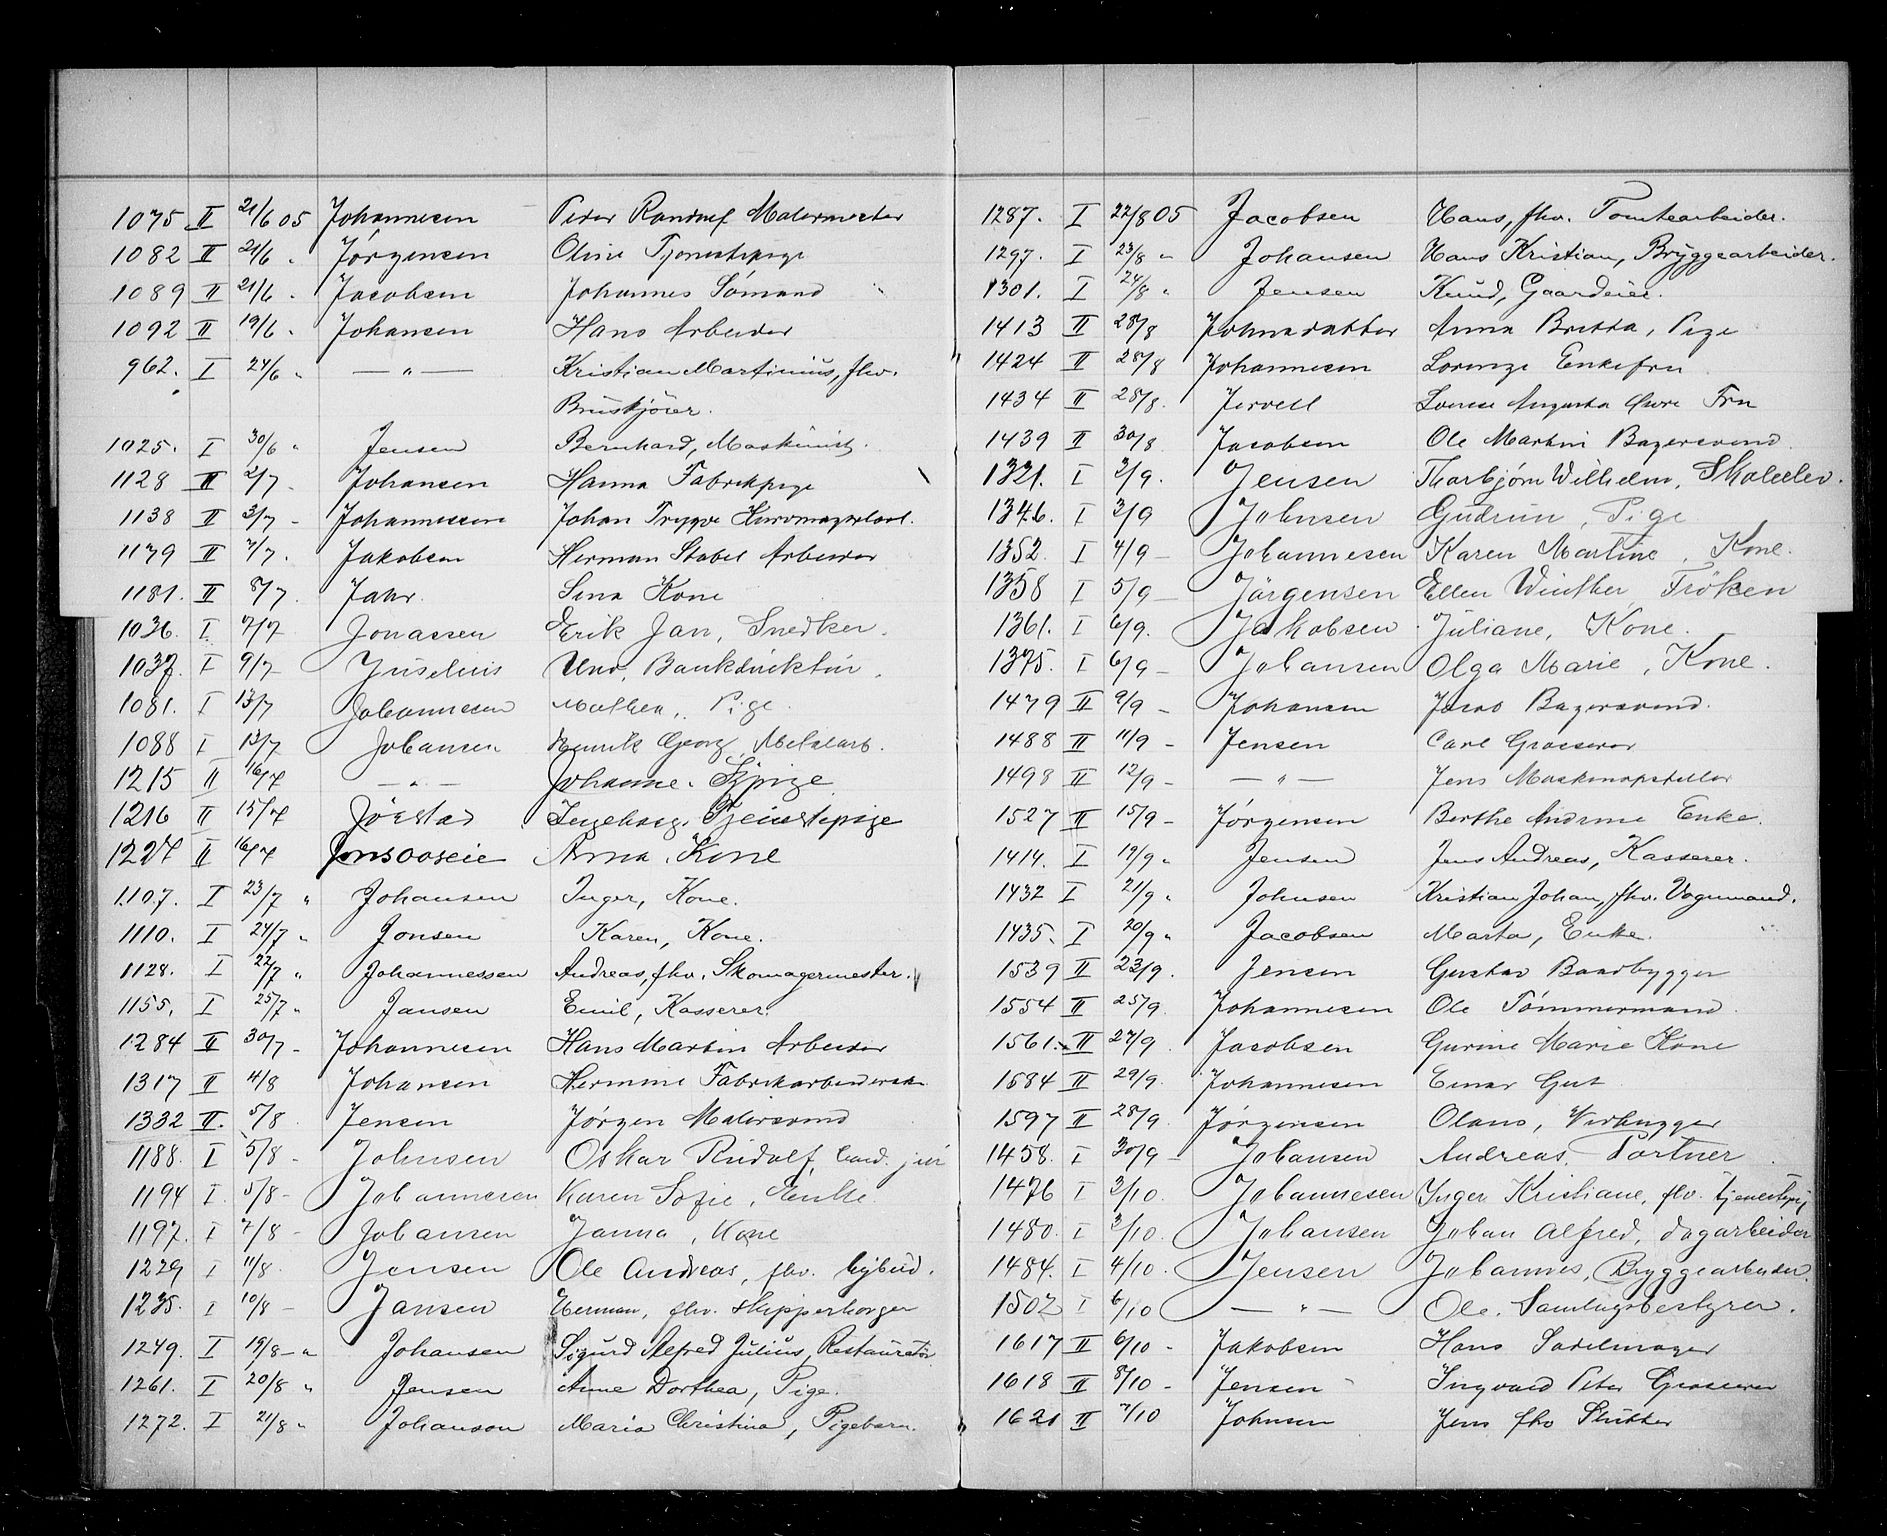 1075 II 21/6 05 Johannesen Peder Randulf Malermester
1082 II 21/6 " Jørgensen Oline Tjenestepige
1089 II 21/6 " Jacobsen Johannes Sømand
1092 II 19/6 " Johansen Hans Arbeider
962. I 24/6 " — " — Kristian Martinius, fhv.
Bruskjører.
1025. I 30/6 " Jensen Bernhard, Maskinist.
1128 II 2/7 - Johansen Hanna Fabrikpige
1138 II 3/7 - Johannessen Johan Trygve
1179 II 7/7. Jakobsen Herman Stabel Arbeider
1181. II 8/7 Jahr. Lina Kone
1036. I. 7/7 Jonassen Erik Jan, Snedker.
1037. I 9/7 Juselius Uno, Bankdirektør.
1081. I 13/7 Johannesen Mathea, Pige.
1088 I 13/7 Johansen Henrik Georg, Metalarb.
1215 II 16/7 — " — Johanne. Sypige
1216 II 15/7 Jørstad Ingeborg. Tjenestepige
1227 II 16/7 Anna. Kone
1107. I 23/7 " Johansen Inger, Kone.
1110. I 24/7 " Jonsen Karen, Kone.
1128. I 22/7 " Johannessen Andreas, fhv. Skomagermester.
1155. I 25/7 " Jansen Emil, Kasserer.
1284 II 30/7 - Johannesen Hans Martin Arbeider
1317 II 4/8 Johansen Hermine Fabrikarbeiderske
1332 II. 5/8 Jensen Jørgen Malersvend
1188. I 5/8 - Johnsen Oskar Rudolf, Cand. jur
1194 I. 5/8 - Johannesen Karen Sofie, Enke.
1197. I 7/8 - Johansen Janna, Kone
1229 I 11/8. Jensen Ole Andreas, fhv. bybud.
1235. I 10/8 - Jansen Herman, fhv. Skipperborger
1249. I 19/8 - " Johansen Sigurd Alfred Julius, Restauratør
1261. I 20/8 " Jensen Anne Dorthea, Pige.
1272. I 21/8 " Johanson Maria Christina, Pigebarn.
1287. I 22/8 05 Jacobsen Hans, fhv. Tomtearbeider.
1297. I 23/8 " Johansen Hans Kristian, Bryggearbeider.
1301. I 24/8 " Jensen Knud, Gaardeier.
1413 II 28/8 Johnsdatter Anna Britta, Pige
1424 II 28/8 Johannesen Lorenze Enkefru
1434 II 28/8. Jervell Louise Augusta Fru
1439 II 30/8 Jacobsen Ole Martin Bagersvend
1321. I 2/9. Jensen Thorbjørn Wilhelm, Skoleelev.
1346. I 3/9 Johnsen Gudrun, Pige
1352. I 4/9 - Johannesen Karen Martine, Kone.
1358 I 5/9 - Jörgensen Ellen Winther, Fröken
1361. I 6/9. Jakobsen Juliane, Kone.
1375. I 6/9 - Johansen Olga Marie, Kone.
1479 II 9/9 - Johansen Jacob Bagersvend.
1488 II 11/9 - Jensen Carl Grosserer
1498 II 12/9 - — " — Jens Maskinopstiller
1527 II 15/9 - Jørgensen Berthe Andrine Enke.
1414. I 19/9 " Jensen Jens Andreas, Kasserer.
1432 I 21/9 " Johnsen Kristian Johan, fhv. Vognmand.
1435. I 20/9 " Jacobsen Marta, Enke.
1539 II 23/9. Jensen Gustav Baadbygger
1554 II 25/9. Johannesen Ole Tømmermand
1561. II 27/9. Jacobsen Gurine Marie Kone
1584 II 29/9. Johannesen Einar Gut
1597 II 28/9. Jørgensen Olaus,
1458. I 30/9 - Johansen Andreas. Portner
1476 I 2/10. Johannesen Inger Kristiane, fhv. tjenestepig
1480. I 3/10. Johansen Johan Alfred, dagarbeider
1484. I 4/10. Jensen Johannes, Bryggearbeider.
1502 I 6/10 — " — Ole. Samlagsbestyrer.
1617 II 6/10 - Jakobsen Hans Sadelmager
1618 II 8/10 - Jensen Ingvald Peter Grosserer
1621 II 7/10 Johnsen Jens fhv Slutter